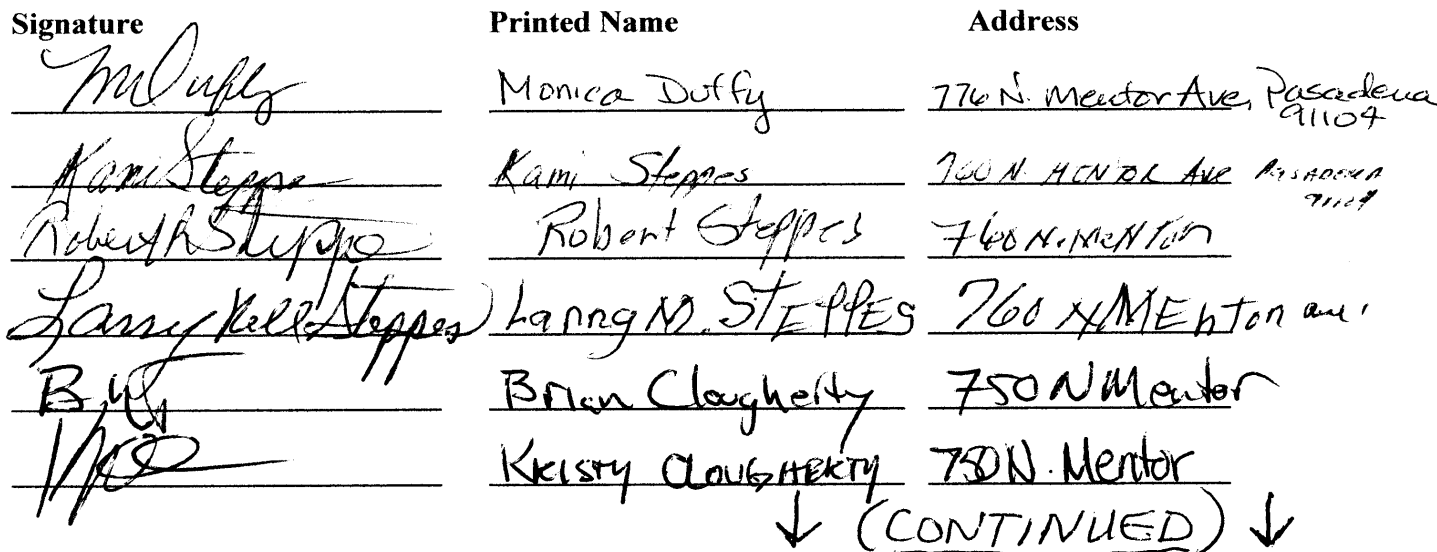 Signature Printed Name Address
MDuffy Monica Duffy 776 N. Mentor Ave, Pasadena
91104
Kami Steppes Kami Steppes 760 N. MENTOR AVE PASADENA
91104
Robert Steppes Robert Steppes 760 N. MENTOR
Larry Nell Steppes Larry N. STEPPES 760 N MENTOR ave.
Brian Clougherty 750 N Mentor
KRISTY CLOUGHERTY 750 N. Mentor
↓ (CONTINUED) ↓